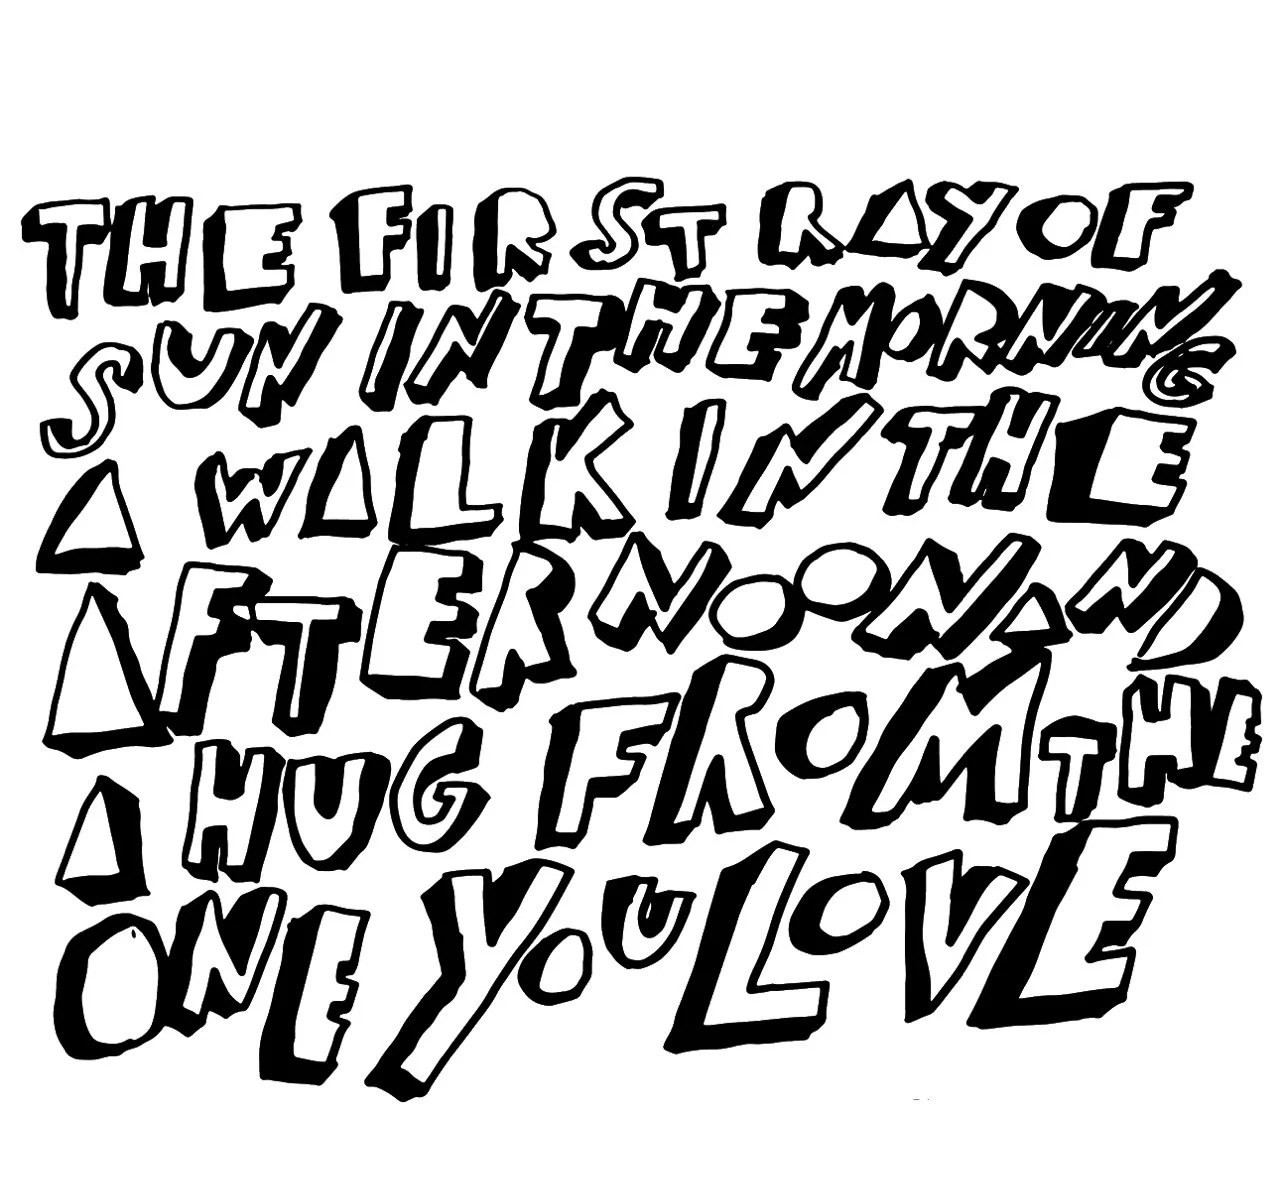 THE FIRST RAY OF
SUN IN THE MORNING
A WALK IN THE
AFTERNOON AND
A HUG FROM THE
ONE YOU LOVE